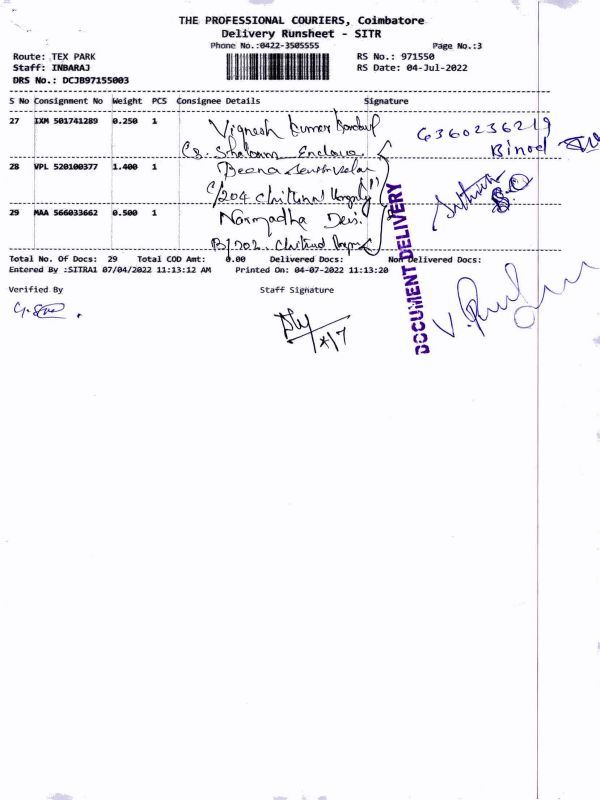 THE PROFESSIONAL COURIERS, Coimbatore
Delivery Runsheet - SITR
Phone No.:0422-3505555
Page No.:3
Route: TEX PARK
RS No.: 971550
Staff: INBARAJ
RS Date: 04-Jul-2022
DRS No.: DCJB97155003
S No Consignment No Weight PCS Consignee Details Signature
27 IXM 501741289 0.250 1 Vignesh Kumar
6360236219
C8. Shalaam Enclave
Binod
28 VPL 520100377 1.400 1 Beena
C/204 Chitund
29 MAA 566033662 0.500 1 Narmadha Devi
B/202. Chitund
DOCUMENT DELIVERY
Total No. Of Docs: 29 Total COD Amt: 0.00 Delivered Docs: Non Delivered Docs:
Entered By :SITRA1 07/04/2022 11:13:12 AM Printed On: 04-07-2022 11:13:20
Verified By Staff Signature